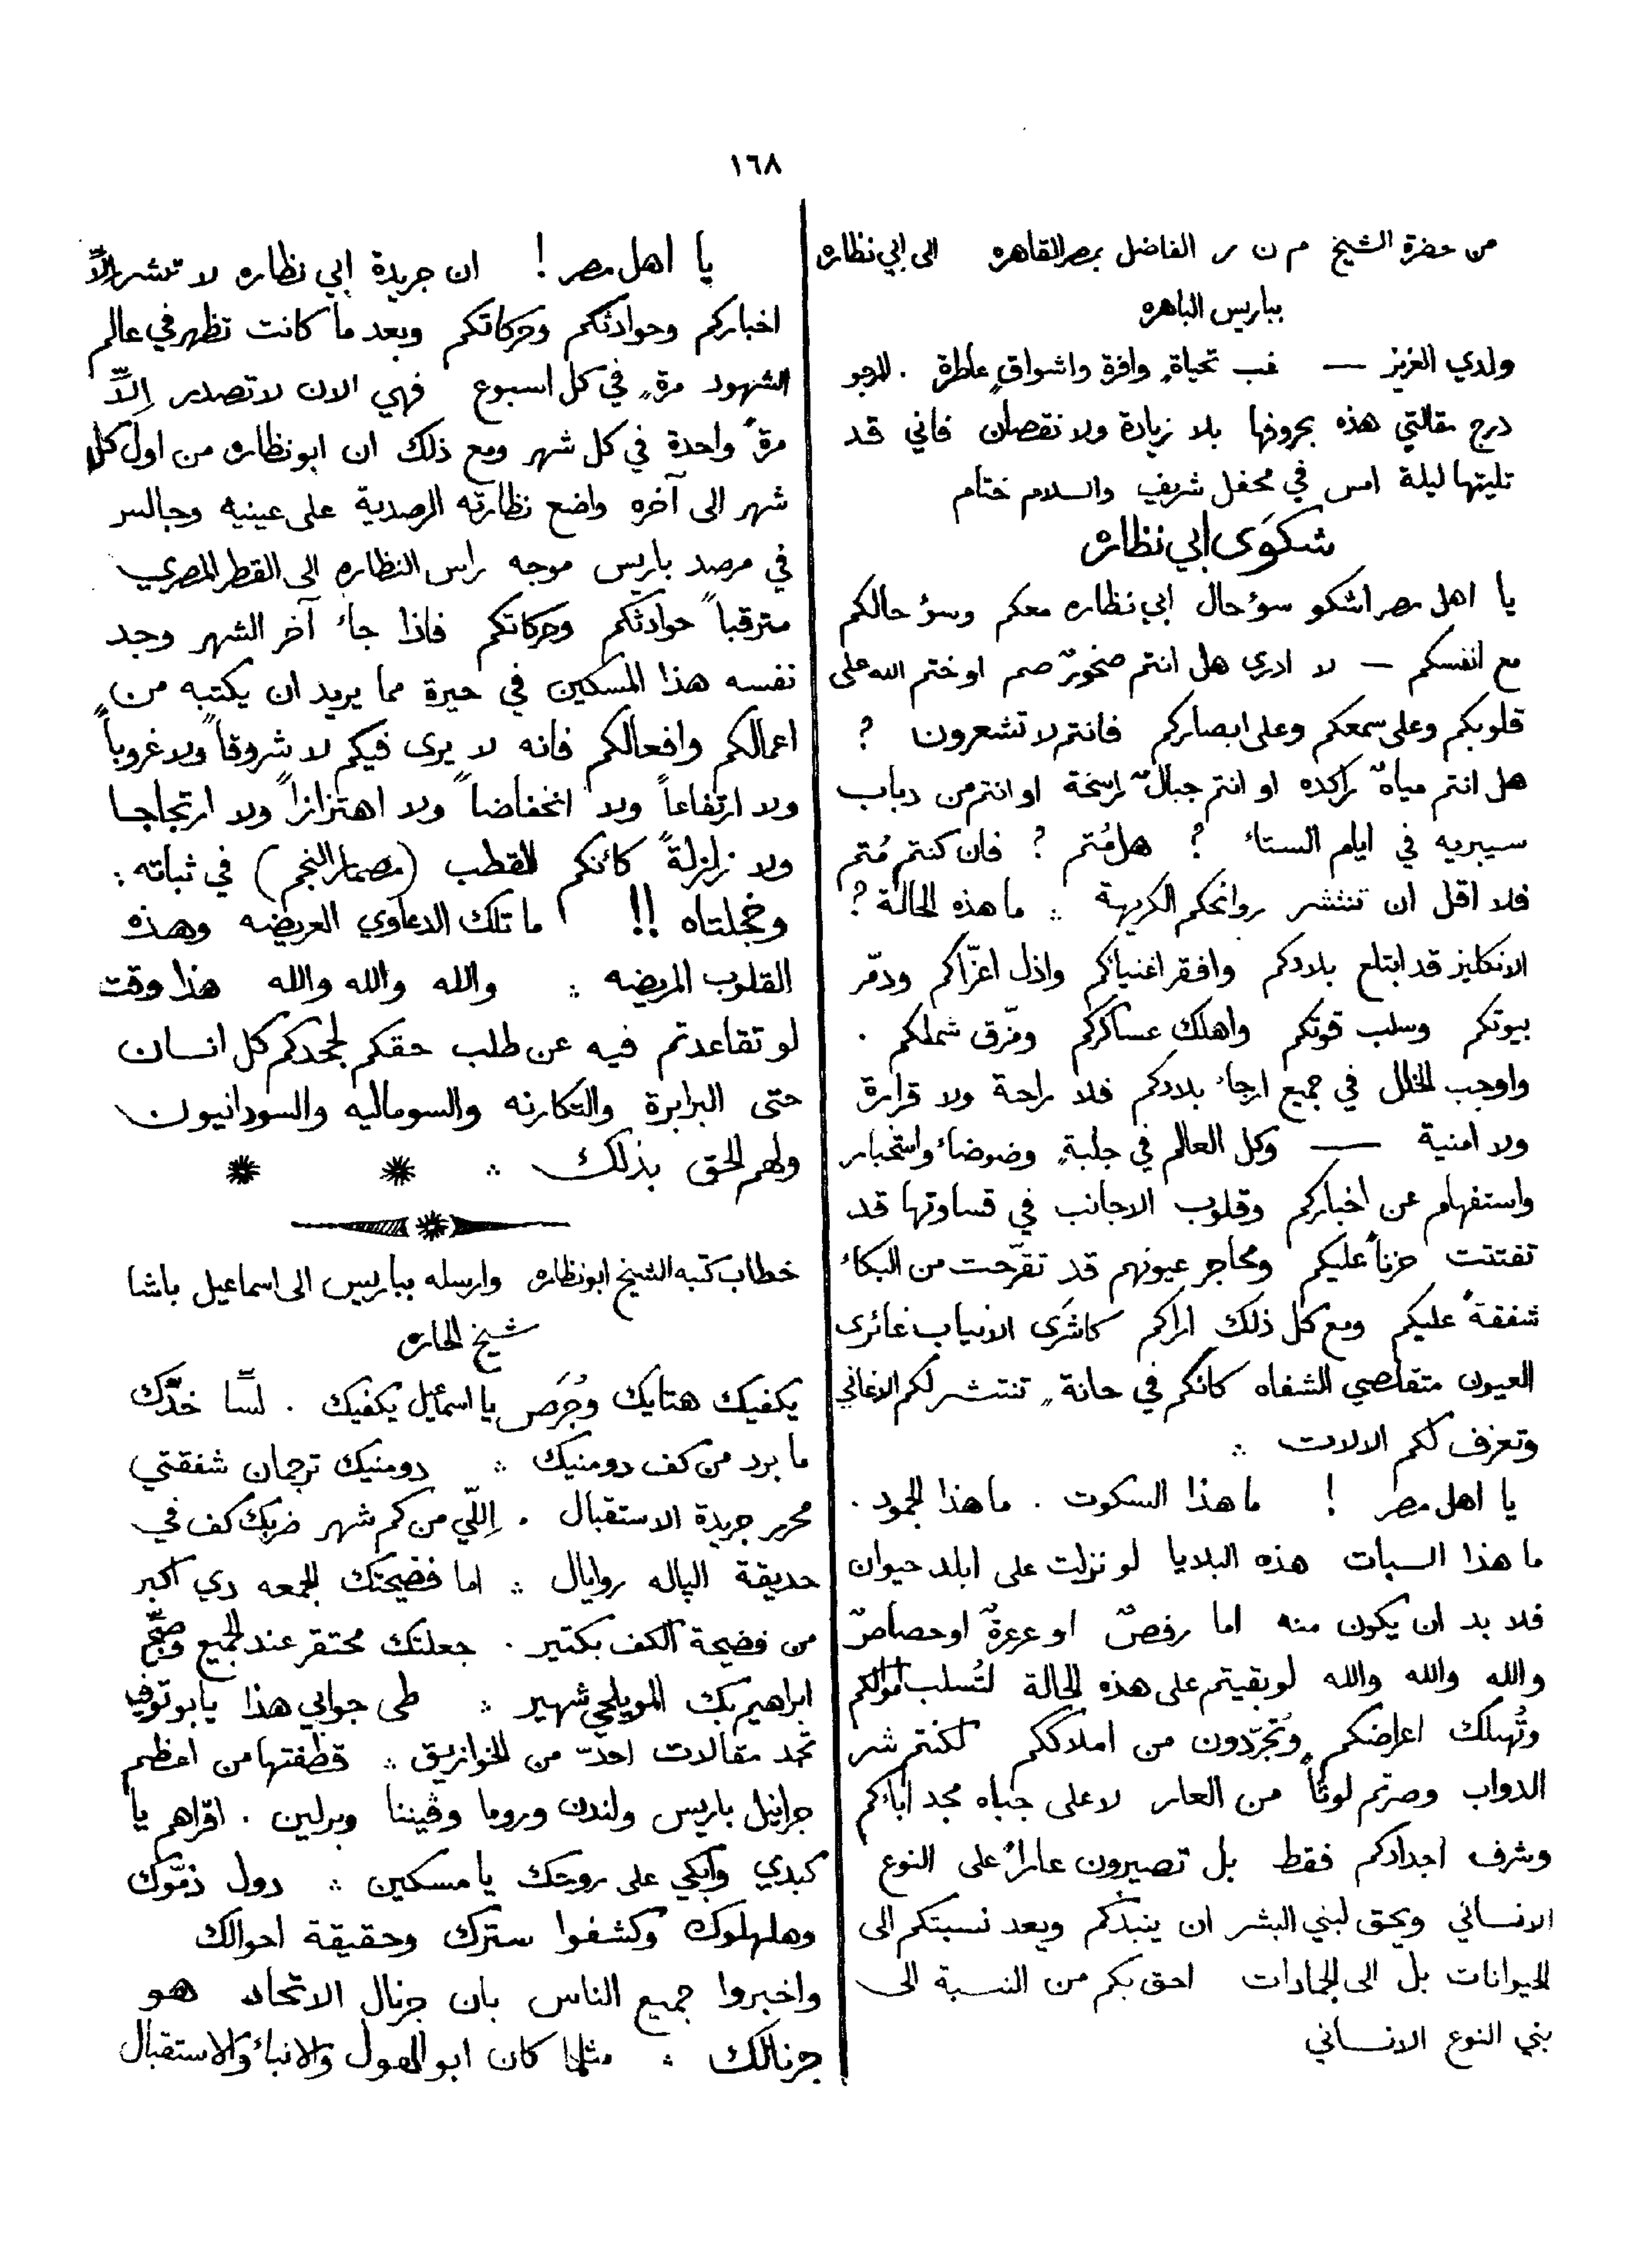 ١٦٨
من حضرة الشيخ م ن ر الفاضل بمصر القاهره الى ابي نظاره
بباريس الباهره
ولدي العزيز — غب تحياةٍ وافرة واشواقٍ عاطرة . المرجو
درج مقالتي هذه بحروفها بلا زيادة ولا نقصان فاني قد
تليتها ليلة امس في محفل شريف والسلام ختام
شكوَى ابي نظاره
يا اهل مصر اشكو سوٴ حال ابي نظاره معكم وسوٴ حالكم
مع انفسكم — لا ادري هل انتم صخورٌ صم او ختم الله على
قلوبكم وعلى سمعكم وعلى ابصاركم فانتم لا تشعرون ?
هل انتم مياهٌ راكده او انتم جبالٌ راسخة او انتم من دباب
سيبريه في ايام الستاء ? هل مُتم ? فان كنتم مُتم
فلا اقل ان تنتشر روائحكم الكريهة ∴ ما هذه الحالة ?
الانكليز قد ابتلع بلادكم وافقر اغنيائكم واذل اعزّاكم ودمّر
بيوتكم وسلب قوتكم واهلك عساكركم ومزّق شملكم .
واوجب الخلل في جميع ارجاء بلادكم فلا راحة ولا قرارة
ولا امنية — وكل العالم في جلبةٍ وضوضاء واستخبار
واستفهام عن اخباركم وقلوب الاجانب في قساوتها قد
تفتتت حزناً عليكم ومحاجر عيونهم قد تقرّحت من البكاء
شفقةً عليكم ومع كل ذلك اراكم كاشرَى الانياب غائرى
العيون متقلصي الشفاه كانكم في حانةٍ تنتشر لكم الاغاني
وتعزف لكم الالات ∴
يا اهل مصر ! ما هذا السكوت . ما هذا الجمود .
ما هذا السبات هذه البلايا لو نزلت على ابلد حيوان
فلا بد ان يكون منه اما رفصٌ او عرعرةٌ او حصاصٌ
والله والله والله لو بقيتم على هذه الحالة لتُسلب اموالكم
وتُهلك اعراضكم وتُجرّدون من املاككم لكنتم شر
الدواب وصرتم لوثاً من العار لا على جباه مجد ابائكم
وشرف اجدادكم فقط بل تصيرون عاراً على النوع
الانساني ويحق لبني البشر ان ينبذكم وبعد نسبتكم الى
الحيوانات بل الى الجمادات احق بكم من النسبة الى
بني النوع الانساني
يا اهل مصر ! ان جريدة ابي نظاره لا تنشر الاّ
اخباركم وحوادثكم وحركاتكم وبعد ما كانت تظهر في عالم
الشهود مرةٍ في كل اسبوع فهي الان لا تصدر اِلاّ
مرةً واحدة في كل شهر ومع ذلك ان ابو نظاره من اول كل
شهر الى آخره واضع نظارته الرصدية على عينيه وجالس
في مرصد باريس موجه راس النظاره الى القطر المصري
مترقباً حوادثكم وحركاتكم فاذا جاء آخر الشهر وجد
نفسه هذا المسكين في حيرة مما يريد ان يكتبه من
اعمالكم وافعالكم فانه لا يرى فيكم لا شروقاً ولا غروباً
ولا ارتفاعاً ولا انخفاضاً ولا اهتزازاً ولا ارتجاجا
ولا زلزلةً كانكم القطب (مصمار النجم) في ثباته :
وخجلتاه !! ما تلك الدعاوي العريضه وهذه
القلوب المريضه ∴ والله والله والله هذا وقت
لو تقاعدتم فيه عن طلب حقكم لجحدكم كل انسان
حتى البرابرة والتكارنه والسوماليه والسودانيون
ولهم الحق بذلك ∴
خطاب كتبه الشيخ ابو نظاره وارسله بباريس الى اسماعيل باشا
شيخ الحاره
يكفيك هتايك وجُرَص يا اسمٰعيل يكفيك . لسّا خدّك
ما برد من كف دومنيك ∴ دومنيك ترجمان شفقتي
محرر جريدة الاستقبال . اِللّي من كم شهر ضربك كف في
حديقة الپاله روايال ∴ اما فضيحتك الجمعه دي اكبر
من فضيحة الكف بكتير . جعلتك محتقر عند الجميع وصحّ
ابراهيم بك المويلحي شهير ∴ طى جوابي هذا يا بو توفيق
تجد مقالات احدّ من الخوازيق ∴ قطفتها من اعظم
جرانيل باريس ولندن وروما وڤيننا وبرلين . اقراهم يا
كبدي وابكي على روحك يا مسكين ∴ دول ذمّوك
وهلهلوك وكشفوا سترك وحقيقة احوالك
واخبروا جميع الناس بان جرنال الاتحاد هو
جرنالك ∴ مثلما كان ابو الهول والانباء والاستقبال